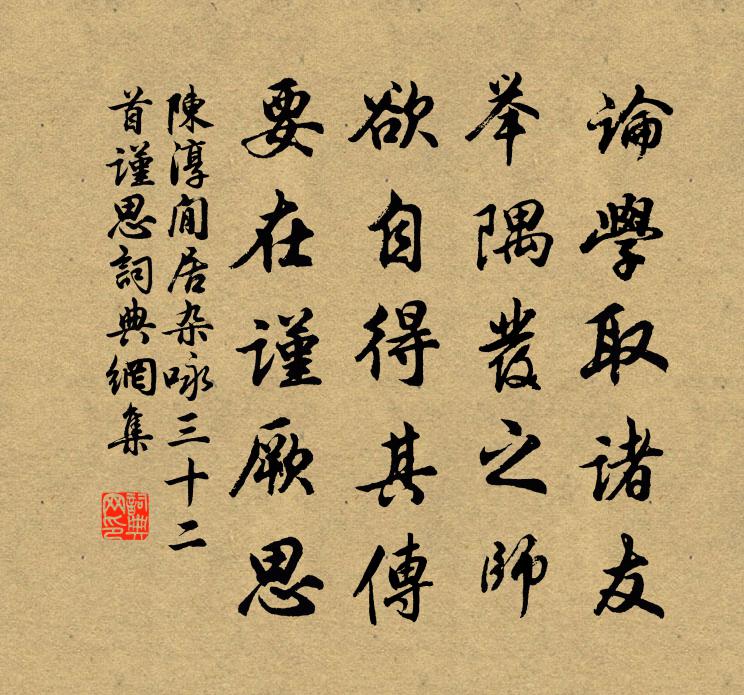 論學取诸友
举隅發之師
欲自得其傳
要在謹厥思
陳淳閒居杂咏三十二
首謹思詞典網集
詞典
网印